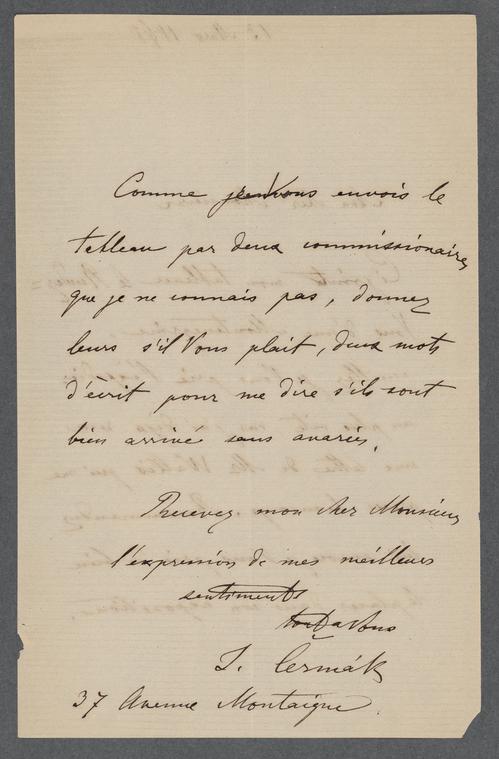 Comme je Vous envois le
tableau par deux commissionaires
que je ne connais pas, donnez
leurs s'il Vous plait, deux mots
d'écrit pour me dire s'ils sont
bien arrivé sans avariés.
Recevez mon cher Monsieur
l'expression de mes meilleurs
sentiments
tout a Vous
J. Čermák
37 Avenue Montaigne.